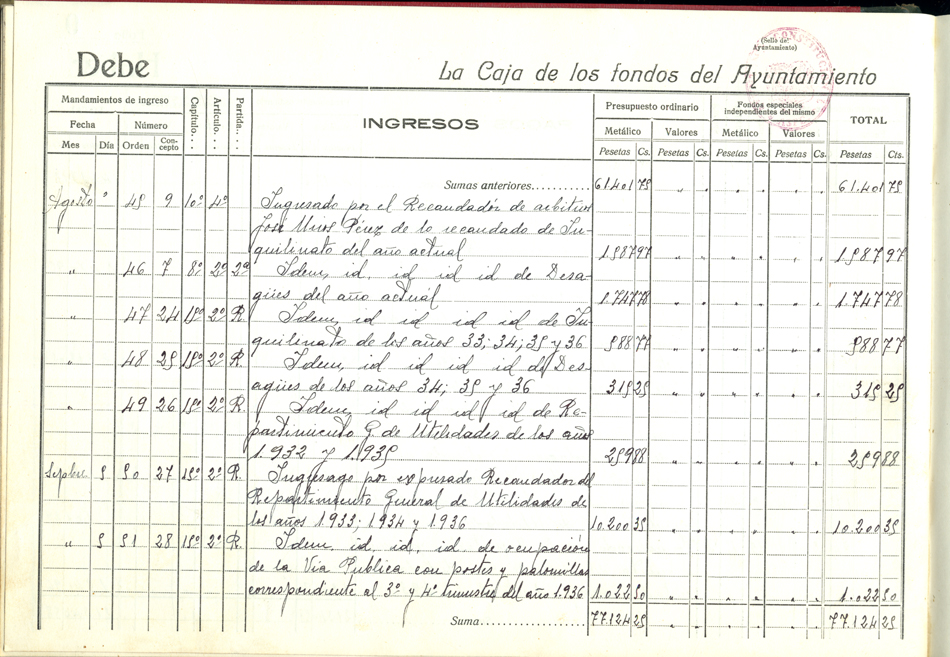 (Sello del
Ayuntamiento)
Debe La Caja de los fondos del Ayuntamiento
Mandamientos de ingreso Capítulo... Artículo... Partida... INGRESOS Presupuesto ordinario Fondos especiales independientes del mismo TOTAL
Fecha Número Metálico Valores Metálico Valores
Mes Día Orden Concepto Pesetas Cs. Pesetas Cs. Pesetas Cs. Pesetas Cs. Pesetas Cts.
Sumas anteriores.......... 61.401 75 " " " " " " 61.401 75
Agosto " 45 9 10º 4º Ingresado por el Recaudador de arbitrios
José Pérez de lo recaudado de In-
quilinato del año actual 1.587 97 " " " " " " 1.587 97
" 46 7 8º 2º 2º Idem, id, id id id de Desa-
gües del año actual 1.747 78 " " " " " " 1.747 78
" 47 24 15º 2º R. Idem, id id id id de In-
quilinato de los años 33; 34; 35 y 36 588 77 " " " " " " 588 77
" 48 25 15º 2º R. Idem, id id id id de Des-
agües de los años 34; 35 y 36 315 25 " " " " " " 315 25
" 49 26 15º 2º R. Idem, id id id id de Re-
partimiento G. de Utilidades de los años
1.932 y 1.935 259 88 " " " " " " 259 88
Sepbre 5 50 27 15º 2º R. Ingresado por expresado Recaudador del
Repartimiento General de Utilidades de
los años 1.933; 1.934 y 1.936 10.200 35 " " " " " " 10.200 35
" 5 51 28 15º 2º R. Idem, id, id, id, de ocupación
de la Via Publica con postes y palomillas
correspondiente al 3º y 4º trimestre del año 1.936 1.022 50 " " " " " " 1.022 50
Suma.................. 77.124 25 " " " " " " 77.124 25